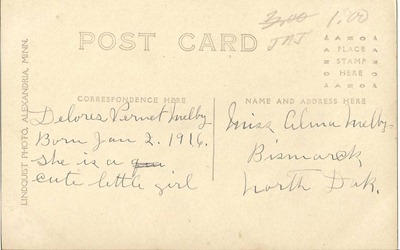 3.00 1.00
JAJ
POST CARD
PLACE
STAMP
HERE
LINDQUIST PHOTO, ALEXANDRIA, MINN.
CORRESPONDENCE HERE
Delores Vernet Melby
Born Jan 2. 1916.
She is a
cute little girl
NAME AND ADDRESS HERE
Miss Alma Melby
Bismarck
North Dak.